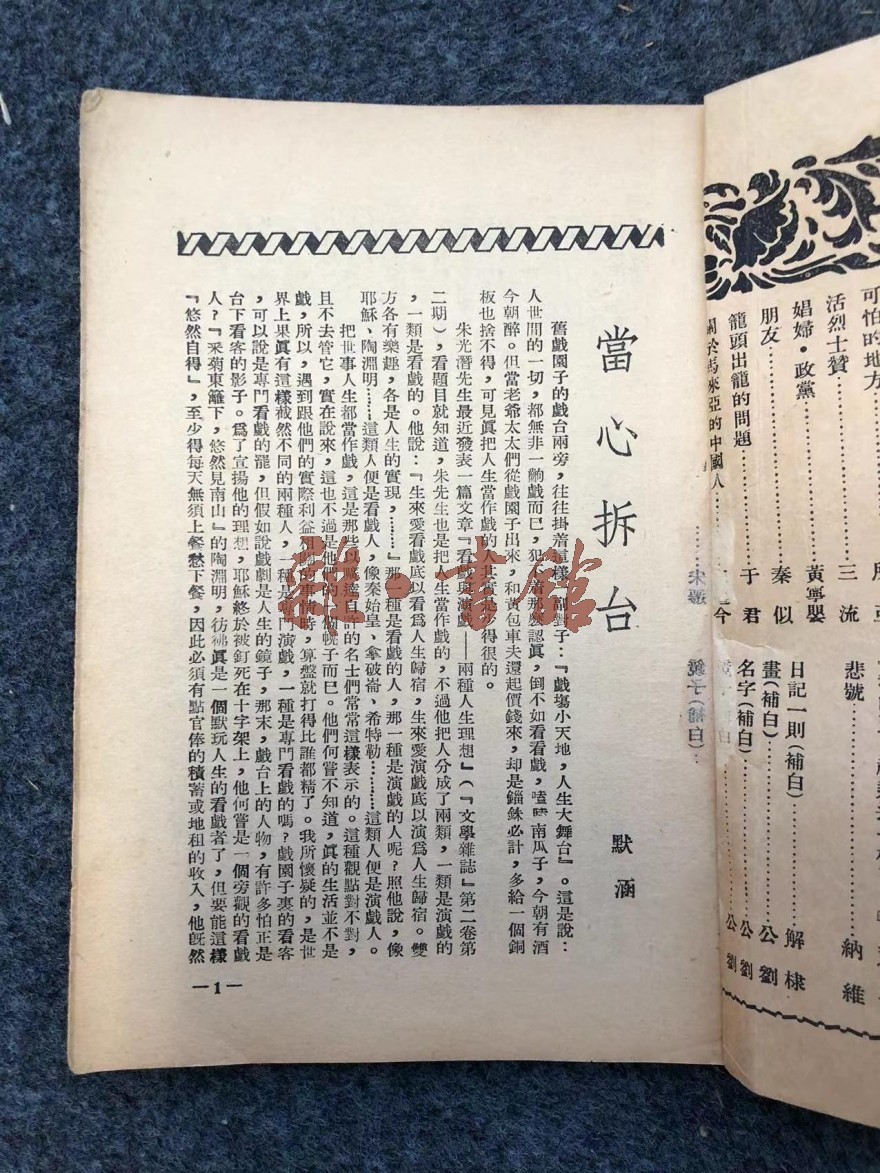 可怕的地方
活烈士贊…………三流
娼婦・政黨…………黃寧嬰
朋友…………秦似
籠頭出籠的問題…………于君
關於馬來亞的中國人…………今
宋
悲號…………納維
日記一則(補白)…………解棣
畫(補白)…………公劉
名字(補白)…………公劉
公劉
鏡子(補白)…
當心拆台
默涵
舊戲園子的戲台兩旁，往往掛着這樣一副對子：『戲塲小天地，人生大舞台』。這是說：
人世間的一切，都無非一齣戲而巳，犯不着那麽認眞，倒不如看看戲，嗑嗑南瓜子，今朝有酒
今朝醉。但當老爺太太們從戲園子出來，和黃包車夫還起價錢來，却是錙銖必計，多給一個銅
板也捨不得，可見眞把人生當作戲的其實是少得很的。
朱光潛先生最近發表一篇文章『看戲與演戲——兩種人生理想』(『文學雜誌』第二卷第
二期)，看題目就知道，朱先生也是把人生當作戲的，不過他把人分成了兩類，一類是演戲的
，一類是看戲的。他說：『生來愛看戲底以看爲人生歸宿，生來愛演戲底以演爲人生歸宿。雙
方各有樂趣，各是人生的實現，……』那一種是看戲的人，那一種是演戲的人呢？照他說，像
耶穌、陶淵明……這類人便是看戲人，像秦始皇、拿破崙、希特勒………這類人便是演戲人。
把世事人生都當作戲，這是那些以曠達自許的名士們常常這樣表示的。這種觀點對不對，
且不去管它，實在說來，這也不過是他們的一個幌子而巳。他們何嘗不知道，眞的生活並不是
戲，所以，遇到跟他們的實際利益相關的事情時，算盤就打得比誰都精了。我所懷疑的，是世
界上果眞有這樣截然不同的兩種人，一種是專門演戲，一種是專門看戲的嗎？戲園子裏的看客
，可以說是專門看戲的罷，但假如說戲劇是人生的鏡子，那末，戲台上的人物，有許多怕正是
台下看客的影子。爲了宣揚他的理想，耶穌終於被釘死在十字架上，他何嘗是一個旁觀的看戲
人？『采菊東籬下，悠然見南山』的陶淵明，彷彿眞是一個默玩人生的看戲者了，但要能這樣
『悠然自得』，至少得每天無須上餐愁下餐，因此必須有點官俸的積蓄或地租的收入，他旣然
—1—
雜・書館